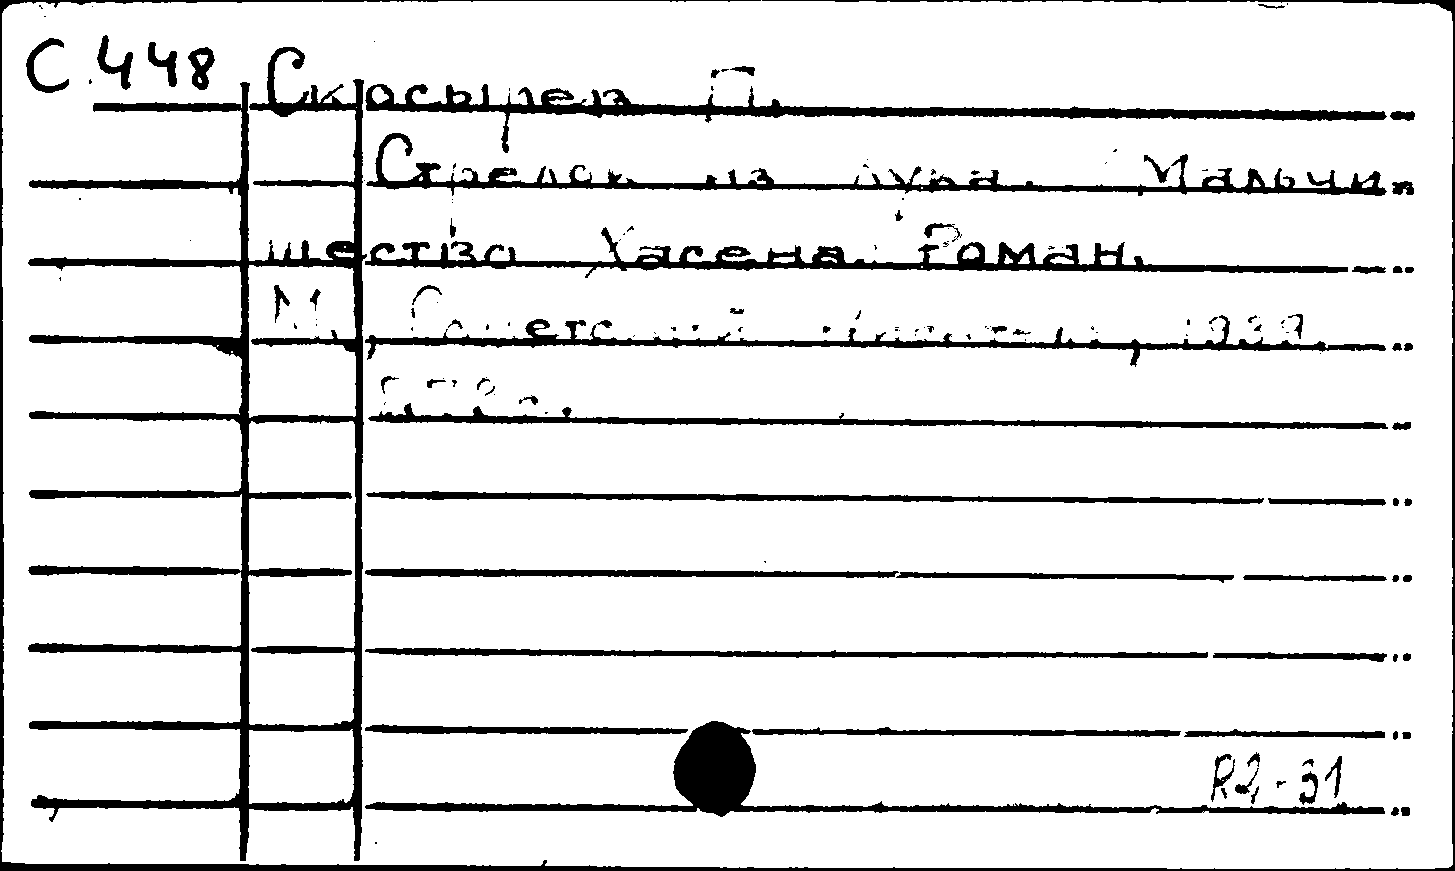 С 448
Скосырев П.
Стрелок из лука. Мальчи-
шество Хасена. Роман.
М., Советский писатель, 1939.
с.
R2-31